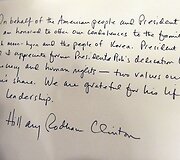 On behalf of the American people and President
am honored to offer our condolences to the family
and the people of Korea. President
appreciate former President Roh's dedication to
and human rights — two values our
share. We are grateful for his life
leadership.
Hillary Rodham Clinton